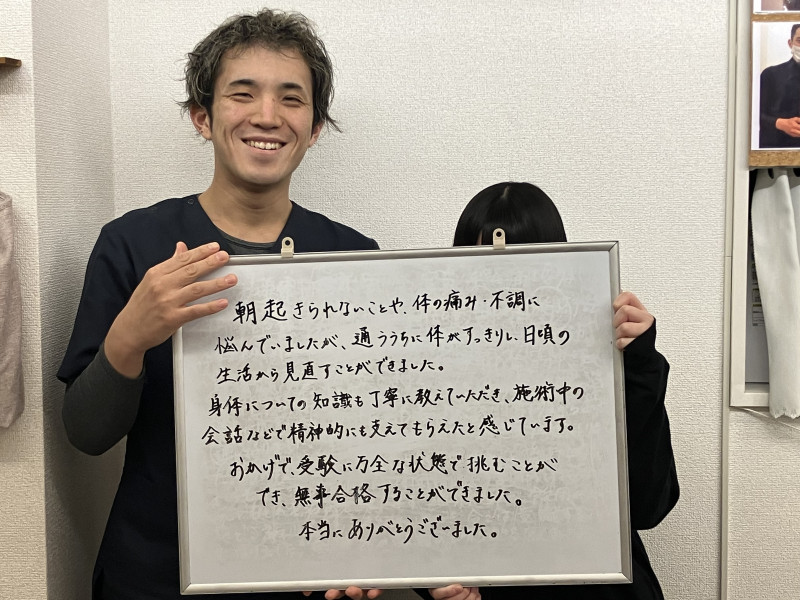 朝起きられないことや、体の痛み・不調に
悩んでいましたが、通ううちに体がすっきりし、日頃の
生活から見直すことができました。
身体についての知識も丁寧に教えていただき、施術中の
会話などで精神的にも支えてもらえたと感じています。
おかげで、受験に万全な状態で挑むことが
でき、無事合格することができました。
本当にありがとうございました。